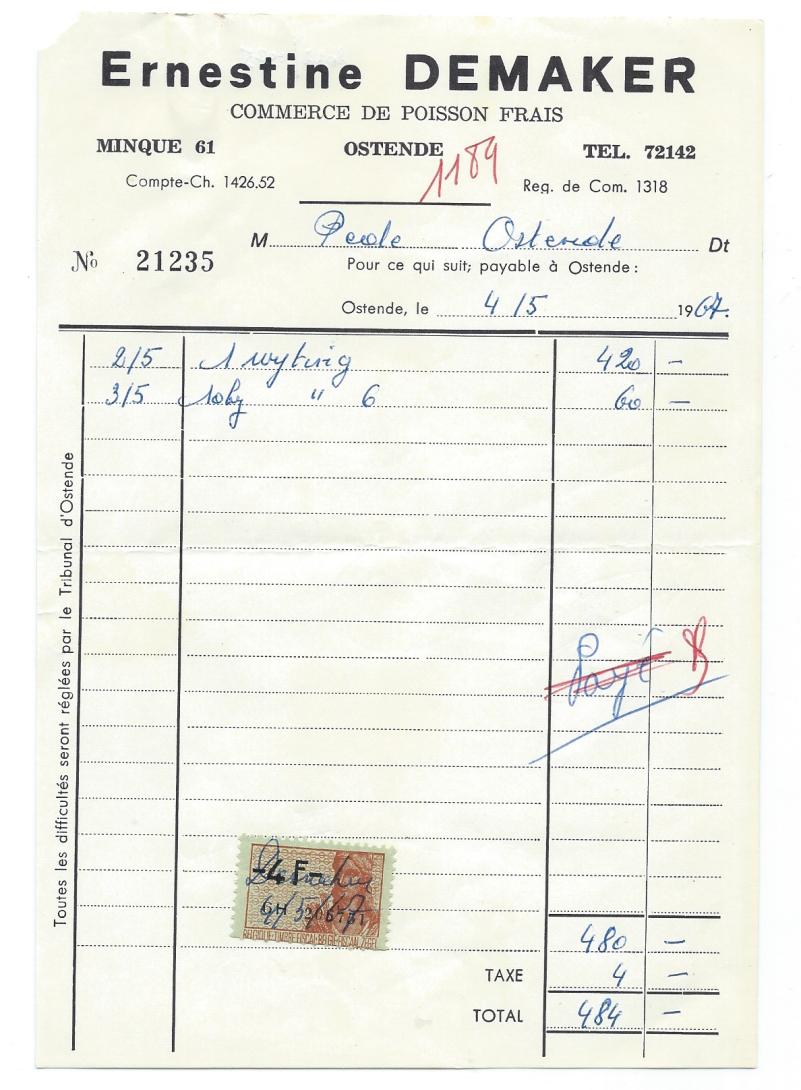 Ernestine DEMAKER
COMMERCE DE POISSON FRAIS
MINQUE 61 OSTENDE TEL. 72142
1189
Compte-Ch. 1426.52 Reg. de Com. 1318
M Ostende Dt
No 21235
Pour ce qui suit; payable à Ostende :
Ostende, le 4/5 1967.
2/5 1 wyting 420 —
3/5 " 6 60 —
Toutes les difficultés seront réglées par le Tribunal d'Ostende
Payé
-4 F-
BELGIQUE-TIMBRE FISCAL-BELGIE-FISCAAL ZEGEL
480 —
TAXE 4 —
TOTAL 484 —